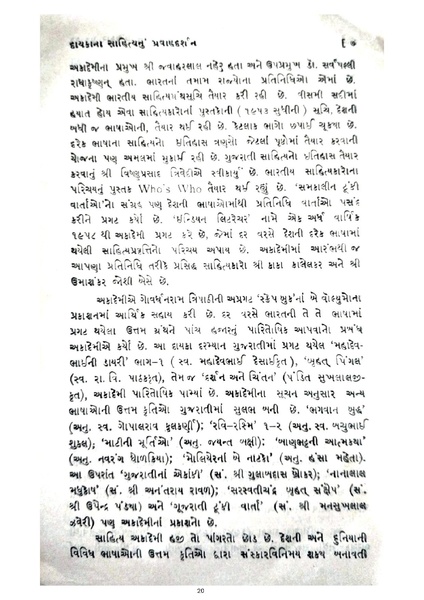 દાયકાના સાહિત્યનું પ્રવાહદર્શન [ ૭
અકાદેમીના પ્રમુખ શ્રી જવાહરલાલ નહેરુ હતા અને ઉપપ્રમુખ ડૉ. સર્વપલ્લી
રાધાકૃષ્ણન્ હતા. ભારતનાં તમામ રાજ્યોના પ્રતિનિધિઓ એમાં છે.
અકાદેમી ભારતીય સાહિત્યગ્રંથસૂચિ તૈયાર કરી રહી છે. વીસમી સદીમાં
હયાત હોય એવા સાહિત્યકારોનાં પુસ્તકોની ( ૧૯૫૩ સુધીની ) સૂચિ, દેશની
બધી જ ભાષાઓની, તૈયાર થઈ રહી છે. કેટલાક ભાગો છપાઈ ચૂક્યા છે.
દરેક ભાષાના સાહિત્યનો ઇતિહાસ ત્રણસો જેટલાં પૃષ્ઠોમાં તૈયાર કરવાની
યોજના પણ અમલમાં મુકાઈ રહી છે. ગુજરાતી સાહિત્યનો ઇતિહાસ તૈયાર
કરવાનું શ્રી વિષ્ણુપ્રસાદ ત્રિવેદીએ સ્વીકાર્યું છે. ભારતીય સાહિત્યકારોના
પરિચયનું પુસ્તક Who's Who તૈયાર થઈ રહ્યું છે. 'સમકાલીન ટૂંકી
વાર્તાઓ'નો સંગ્રહ પણ દેશની ભાષાઓમાંથી પ્રતિનિધિ વાર્તાઓ પસંદ
કરીને પ્રગટ કર્યો છે. 'ઇન્ડિયન લિટરેચર' નામે એક અર્ધ વાર્ષિક
૧૯૫૮ થી અકાદેમી પ્રગટ કરે છે, જેમાં દર વરસે દેશની દરેક ભાષામાં
થયેલી સાહિત્યપ્રવૃત્તિનો પરિચય અપાય છે. અકાદેમીમાં આરંભથી જ
આપણા પ્રતિનિધિ તરીકે પ્રસિદ્ધ સાહિત્યકારો શ્રી કાકા કાલેલકર અને શ્રી
ઉમાશંકર જોશી બેસે છે.
અકાદેમીએ ગોવર્ધનરામ ત્રિપાઠીની અપ્રગટ 'સ્ક્રેપ બુક'નાં બે વોલ્યુમોના
પ્રકાશનમાં આર્થિક સહાય કરી છે. દર વરસે ભારતની તે તે ભાષામાં
પ્રગટ થયેલા ઉત્તમ ગ્રંથને પાંચ હજારનું પારિતોષિક આપવાનો પ્રબંધ
અકાદેમીએ કર્યો છે. આ દાયકા દરમ્યાન ગુજરાતીમાં પ્રગટ થયેલ 'મહાદેવ-
ભાઈની ડાયરી' ભાગ-૧ ( સ્વ. મહાદેવભાઈ દેસાઈકૃત ), 'બૃહત્ પિંગલ'
(સ્વ. રા. વિ. પાઠકકૃત), તેમ જ 'દર્શન અને ચિંતન' (પંડિત સુખલાલજી-
કૃત), અકાદેમી પારિતોષિક પામ્યાં છે. અકાદેમીના સૂચન અનુસાર અન્ય
ભાષાઓની ઉત્તમ કૃતિઓ ગુજરાતીમાં સુલભ બની છે. 'ભગવાન બુદ્ધ'
(અનુ. સ્વ. ગોપાલરાવ કુલકર્ણી); 'રવિ-રશ્મિ' ૧-૨ (અનુ. સ્વ. બચુભાઈ
શુક્લ); 'માટીની મૂર્તિઓ' (અનુ. જયન્ત બક્ષી): 'બાણભટ્ટની આત્મકથા'
(અનુ. નવરંગ ધોળકિયા); 'મોલિયેરનાં બે નાટકો' (અનુ. હંસા મહેતા).
આ ઉપરાંત 'ગુજરાતીનાં એકાંકી' (સં. શ્રી ગુલાબદાસ બ્રોકર); 'નાનાલાલ
મધુકોષ' (સં. શ્રી અનંતરાય રાવળ); 'સરસ્વતીચંદ્ર બૃહત્ સંક્ષેપ' (સં.
શ્રી ઉપેન્દ્ર પંડ્યા) અને 'ગુજરાતી ટૂંકી વાર્તા' (સં. શ્રી મનસુખલાલ
ઝવેરી) પણ અકાદેમીનાં પ્રકાશનો છે.
સાહિત્ય અકાદેમી હજી તો પાંગરતો છોડ છે. દેશની અને દુનિયાની
વિવિધ ભાષાઓની ઉત્તમ કૃતિઓ દ્વારા સંસ્કારવિનિમય શક્ય બનાવતી
20